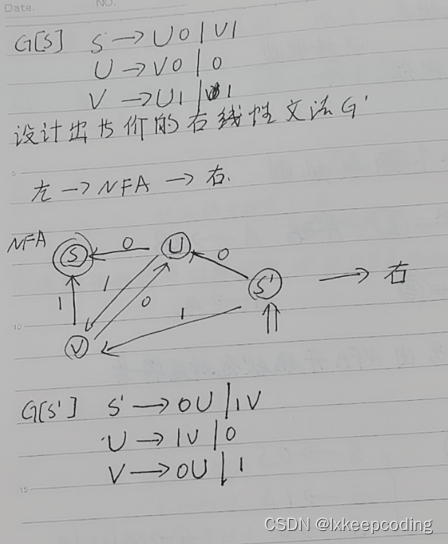 Date. NO.
G[S] S → U0 | V1
U → V0 | 0
V → U1 | 1
设计出与价的右线性文法G'
左 → NFA → 右.
NFA S 0 U 0 S' → 右
1 1 0 1
10 V
G[S'] S' → 0U | 1V
U → 1V | 0
V → 0U | 1
15
CSDN @lxkeepcoding